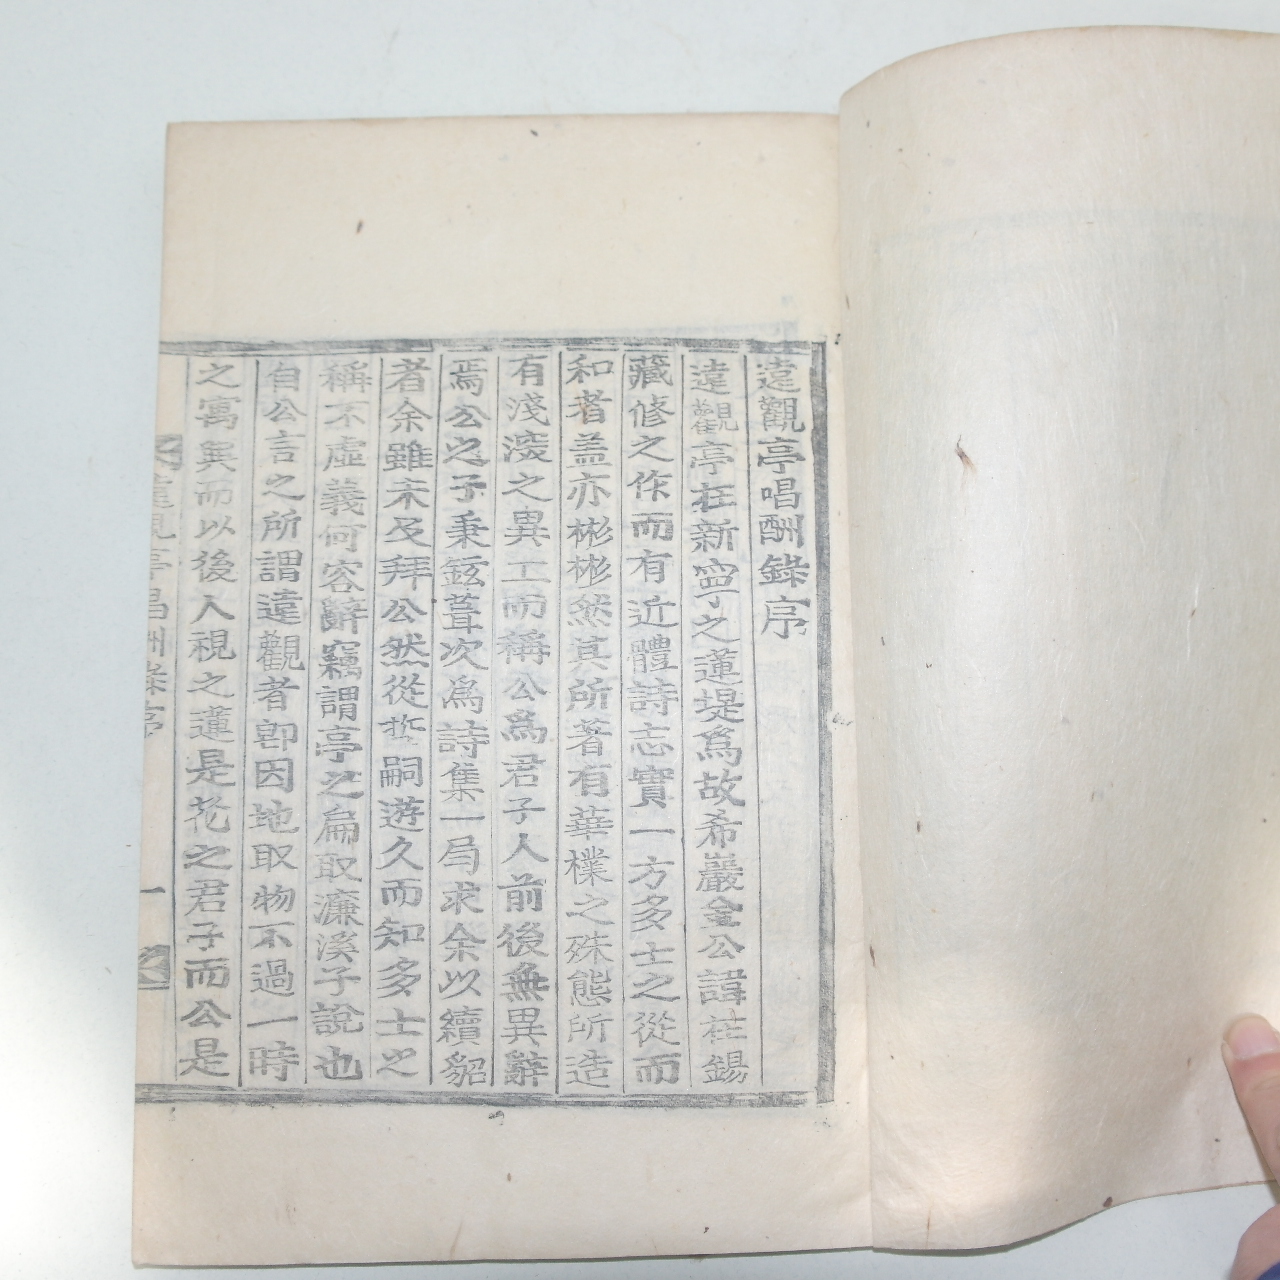 遠觀亭唱酬錄序
遠觀亭在新寧之蓮堤爲故希巖金公諱柱錫
藏修之作而有近體詩志實一方多士之從而
和者盖亦彬彬然其所著有華樸之殊態所造
有淺深之異工而稱公爲君子人前後無異辭
焉公之子秉鉉葺次爲詩集一局求余以續貂
者余雖未及拜公然從哲嗣遊久而知多士之
稱不虛義何容辭竊謂亭之扁取濂溪子說也
自公言之所謂遠觀者卽因地取物不過一時
之寓興而以後人視之蓮是花之君子而公是
遠觀亭唱酬錄序
一